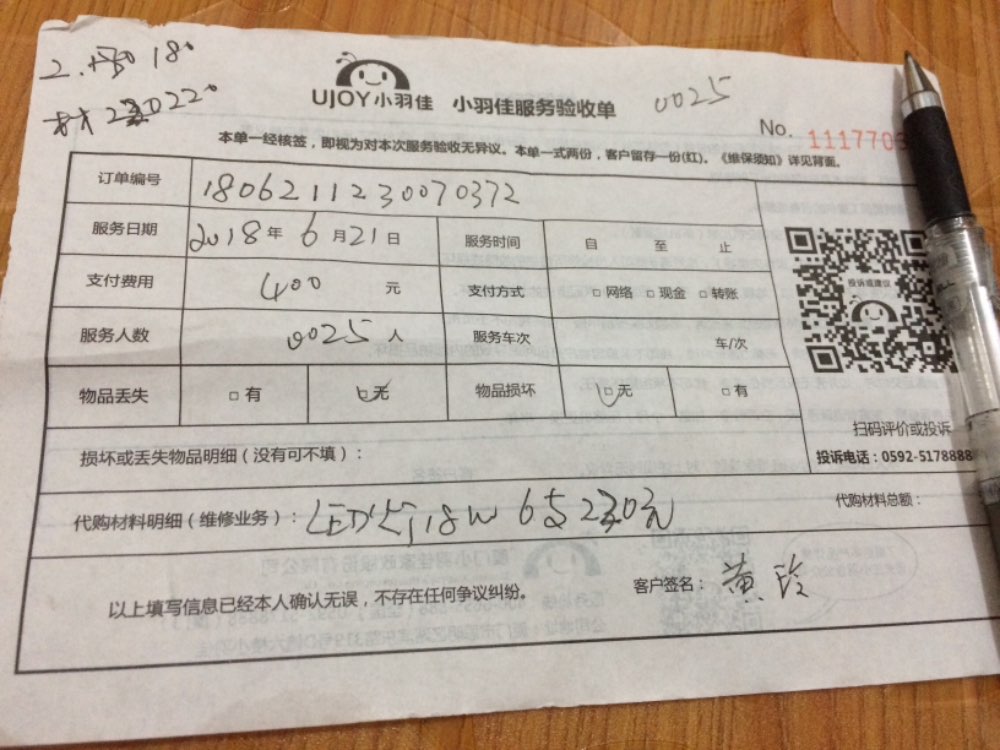 180
220
UJOY小羽佳 小羽佳服务验收单 0025
No. 111770
本单一经核签，即视为对本次服务验收无异议。本单一式两份，客户留存一份(红)。《维保须知》详见背面。
订单编号 1806211230070372
服务日期 2018年6月21日 服务时间 自 至 止
支付费用 400 元 支付方式 □网络 □现金 □转账
服务人数 0025人 服务车次 车/次
物品丢失 □有 □无 物品损坏 □无 □有
投诉或建议
扫码评价或投诉
投诉电话：0592-5178888
损坏或丢失物品明细（没有可不填）：
代购材料明细（维修业务）：LED灯18W 6支230元 代购材料总额：
以上填写信息已经本人确认无误，不存在任何争议纠纷。 客户签名：黄玲